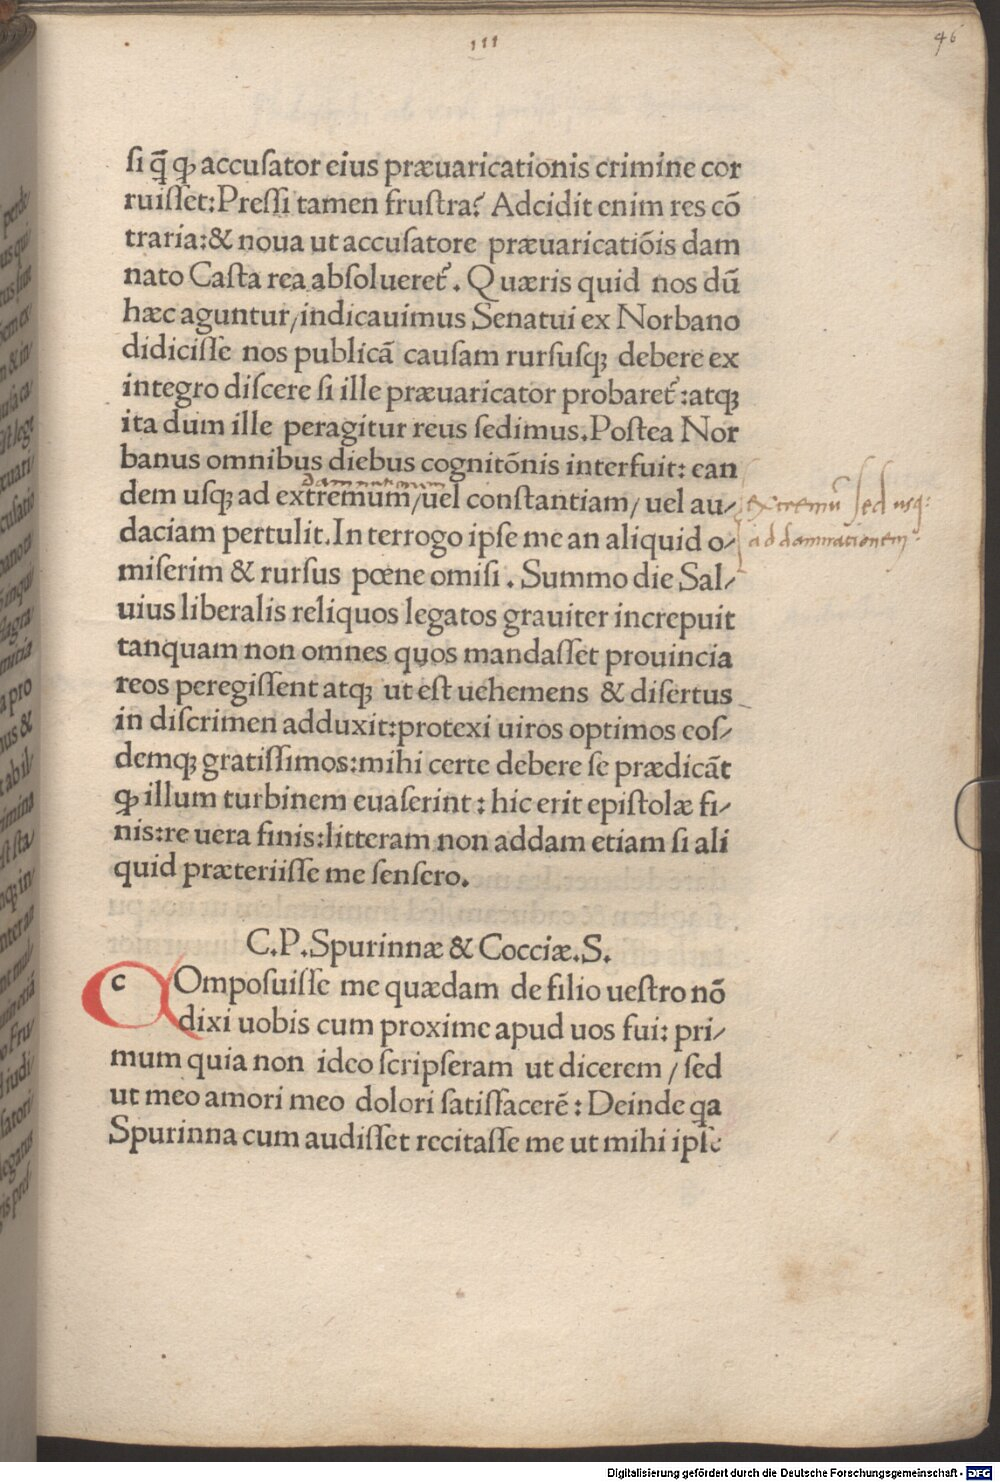 III
46
si q̄ꝗ accusator eius præuaricationis crimine cor
ruisset: Pressi tamen frustra? Adcidit enim res cō
traria: & noua ut accusatore præuaricatiōis dam
nato Casta rea absolueret᷑. Quæris quid nos dū
hæc aguntur/ indicauimus Senatui ex Norbano
didicisse nos publicā causam rursusqꝫ debere ex
integro discere si ille præuaricator probaret᷑: atqꝫ
ita dum ille peragitur reus sedimus. Postea Nor
banus omnibus diebus cognitōnis interfuit: ean
damnationem
dem usqꝫ ad extremum/ uel constantiam/ uel au/
extremū sed usqꝫ
daciam pertulit. In terrogo ipse me an aliquid o/
ad damnationem
miserim & rursus pœne omisi. Summo die Sal/
uius liberalis reliquos legatos grauiter increpuit
tanquam non omnes quos mandasset prouincia
reos peregissent atqꝫ ut est uehemens & disertus
in discrimen adduxit: protexi uiros optimos eos/
demqꝫ gratissimos: mihi certe debere se prædicāt
ꝙ illum turbinem euaserint: hic erit epistolæ fi/
nis: re uera finis: litteram non addam etiam si ali
quid præteriisse me sensero.
C.P. Spurinnæ & Cocciæ. S.
COmposuisse me quædam de filio uestro nō
dixi uobis cum proxime apud uos fui: pri/
mum quia non ideo scripseram ut dicerem/ sed
ut meo amori meo dolori satisfacerē: Deinde qa
Spurinna cum audisset recitasse me ut mihi ipse
Digitalisierung gefördert durch die Deutsche Forschungsgemeinschaft - DFG